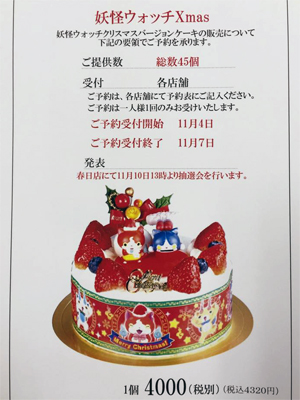 妖怪ウォッチXmas
妖怪ウォッチクリスマスバージョンケーキの販売について
下記の要領でご予約を承ります。
ご提供数 総数45個
受付 各店舗
ご予約は、各店舗にて予約表にご記入ください。
ご予約は一人様1回のみお受けいたします。
ご予約受付開始 11月4日
ご予約受付終了 11月7日
発表
春日店にて11月10日13時より抽選会を行います。
Merry Christmas!
1個 4000(税別) (税込4320円)